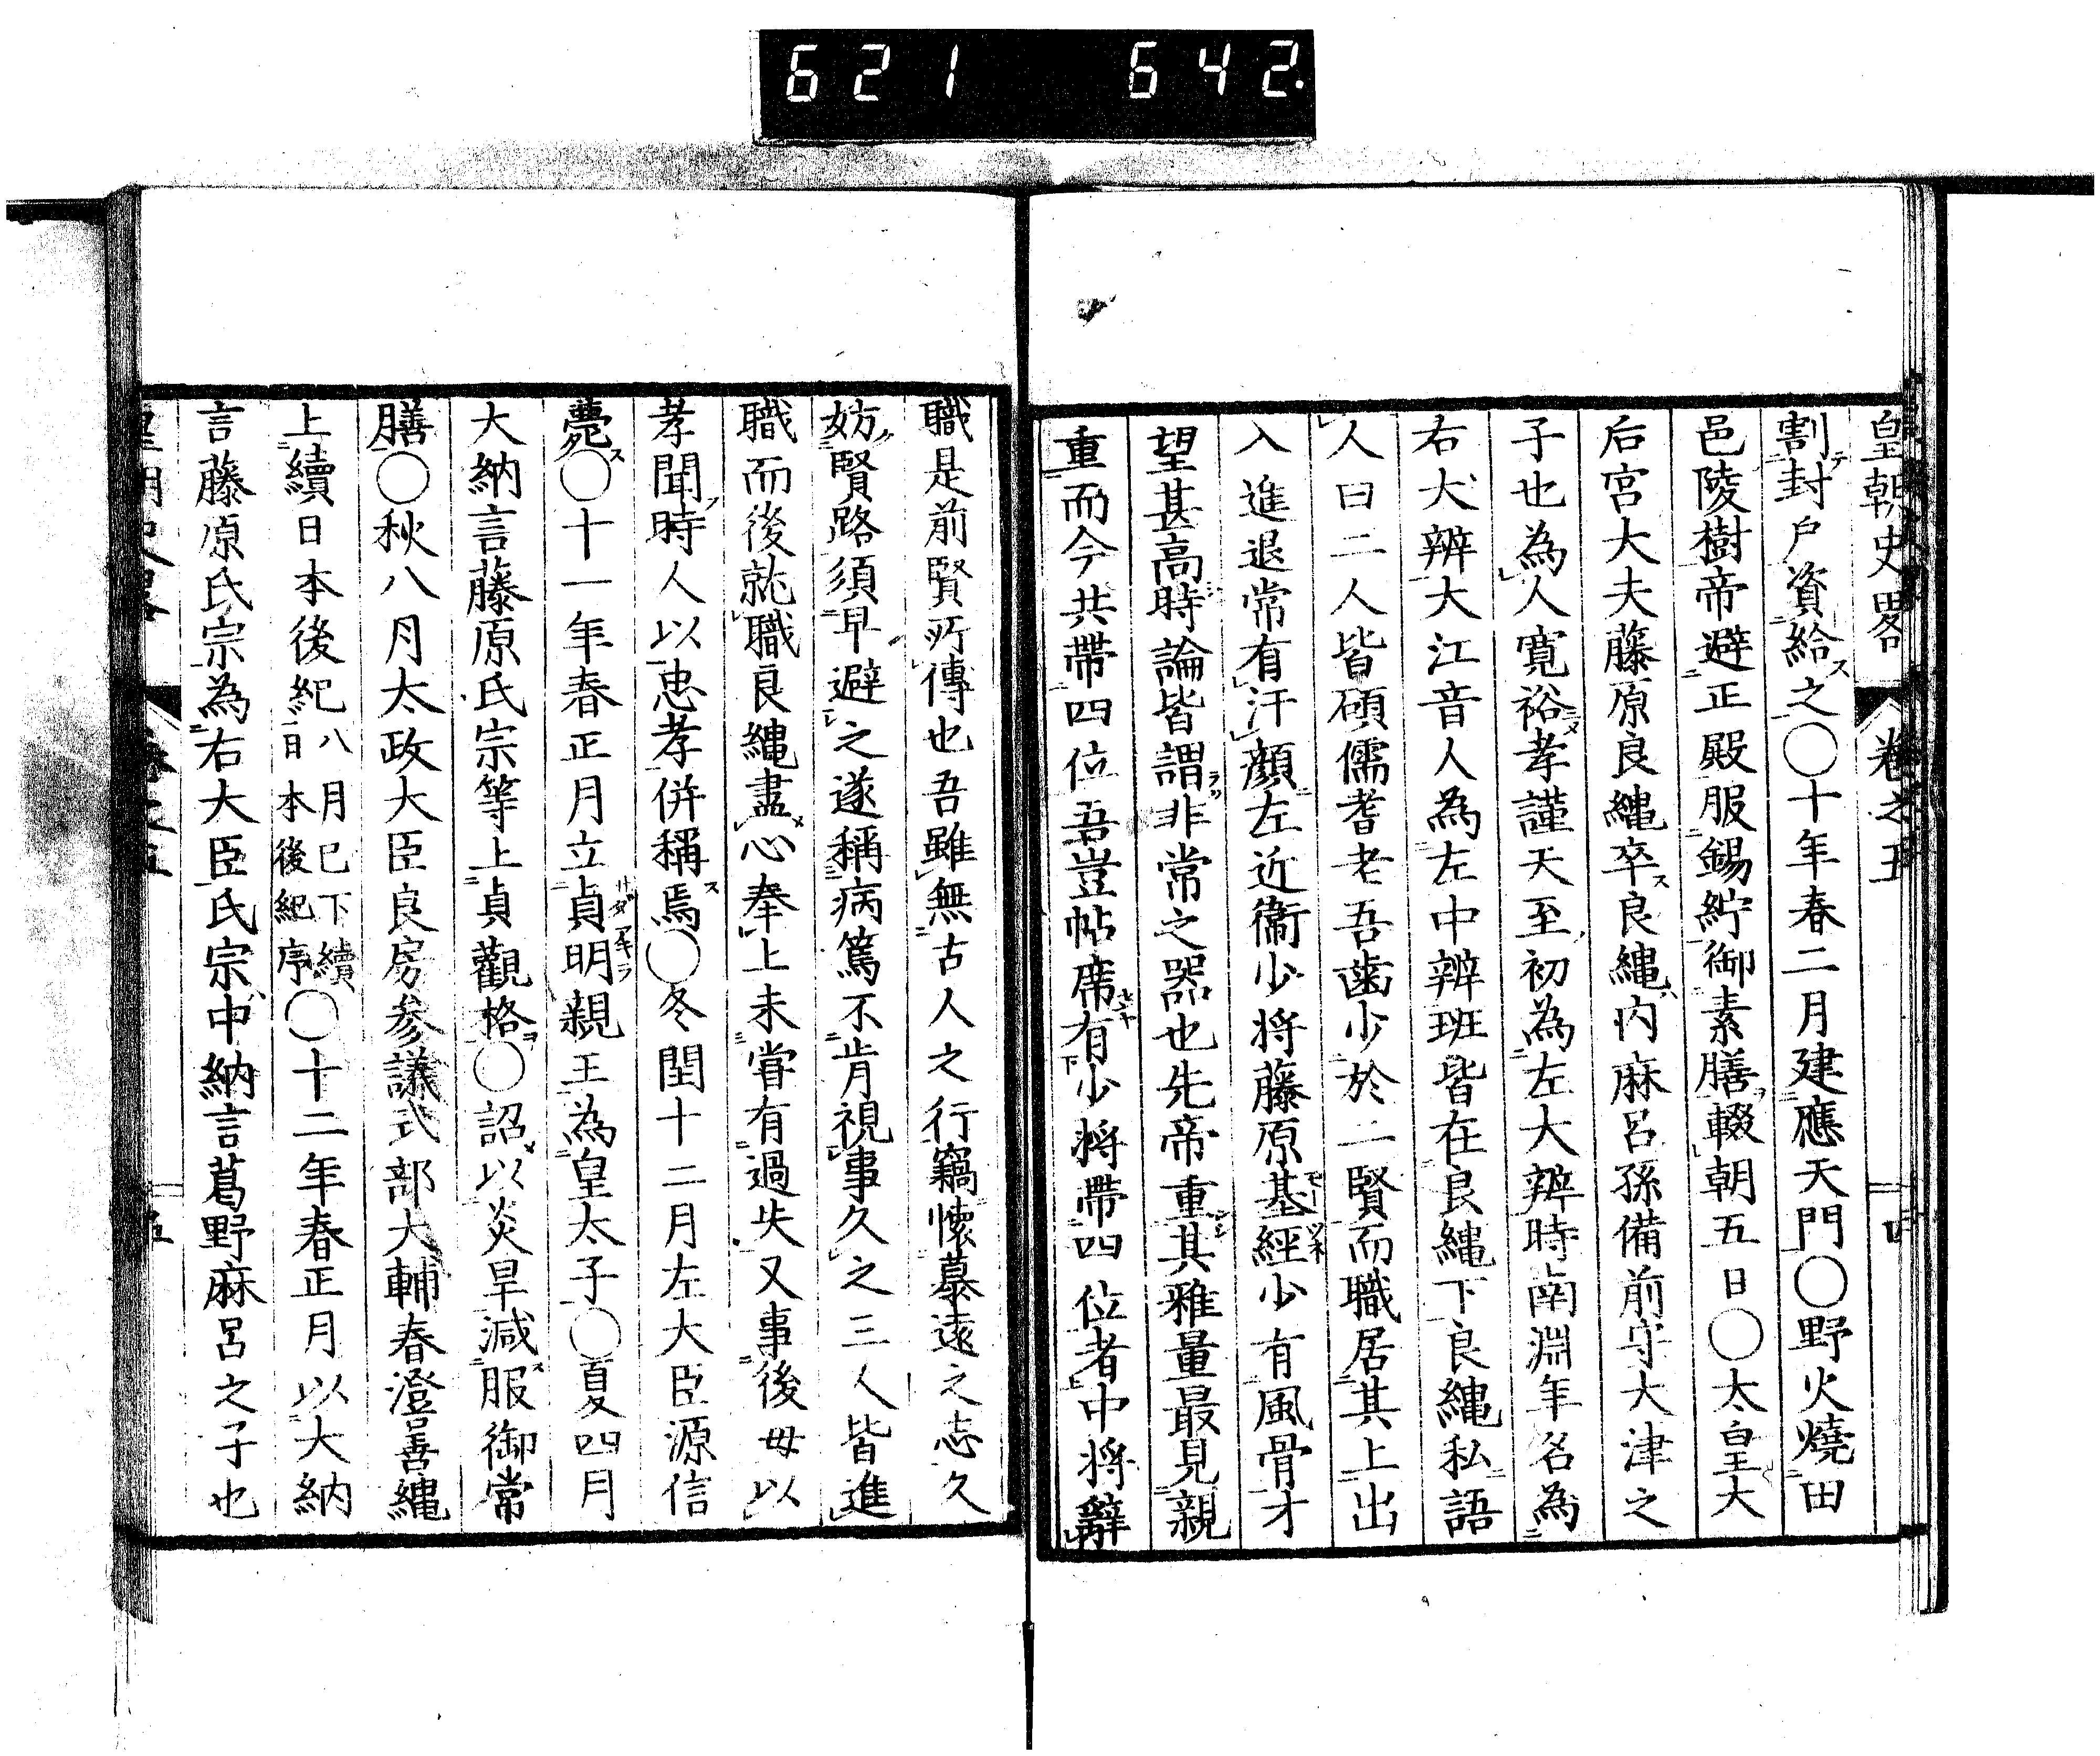 621 642.
皇朝史畧 卷之五 四
割封戶資給之○十年春二月建應天門○野火燒田
邑陵樹帝避正殿服錫紵御素膳輟朝五日○太皇大
后宮大夫藤原良繩卒良繩內麻呂孫備前守大津之
子也為人寬裕孝謹天至初為左大辨時南淵年名為
右大辨大江音人為左中辨班皆在良繩下良繩私語
人曰二人皆碩儒耆老吾齒少於二賢而職居其上出
入進退常有汗顏左近衞少將藤原基經少有風骨才
望甚高時論皆謂非常之器也先帝重其雅量最見親
重而今共帶四位吾豈帖席有少將帶四位者中將辭
職是前賢所傳也吾雖無古人之行竊懷慕遠之志久
妨賢路須早避之遂稱病篤不肯視事久之三人皆進
職而後就職良繩盡心奉上未甞有過失又事後母以
孝聞時人以忠孝併稱焉○冬閏十二月左大臣源信
薨○十一年春正月立貞明親王為皇太子○夏四月
大納言藤原氏宗等上貞觀格○詔以炎旱減服御常
膳○秋八月太政大臣良房參議式部大輔春澄善繩
上續日本後紀八月已下續日本後紀序○十二年春正月以大納
言藤原氏宗為右大臣氏宗中納言葛野麻呂之子也